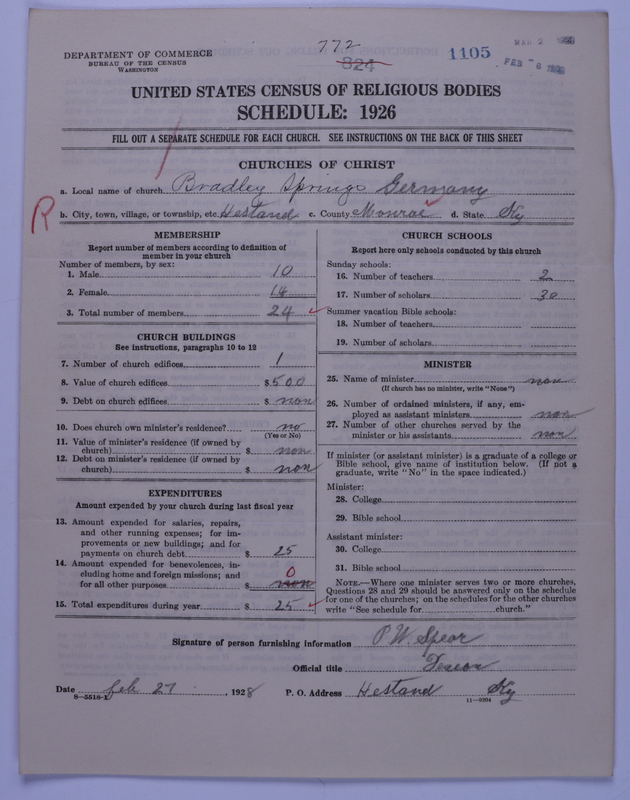 772
DEPARTMENT OF COMMERCE
BUREAU OF THE CENSUS
WASHINGTON
824
1105
MAR 2
FEB 6
UNITED STATES CENSUS OF RELIGIOUS BODIES
SCHEDULE: 1926
FILL OUT A SEPARATE SCHEDULE FOR EACH CHURCH. SEE INSTRUCTIONS ON THE BACK OF THIS SHEET
CHURCHES OF CHRIST
a. Local name of church Bradley Springs Germany
R
b. City, town, village, or township, etc. Hestand c. County Monroe d. State Ky
MEMBERSHIP
Report number of members according to definition of
member in your church
Number of members, by sex:
1. Male 10
2. Female 14
3. Total number of members 24
CHURCH BUILDINGS
See instructions, paragraphs 10 to 12
7. Number of church edifices 1
8. Value of church edifices $ 500
9. Debt on church edifices $ non
10. Does church own minister's residence? no
(Yes or No)
11. Value of minister's residence (if owned by
church) $ non
12. Debt on minister's residence (if owned by
church) $ non
EXPENDITURES
Amount expended by your church during last fiscal year
13. Amount expended for salaries, repairs,
and other running expenses; for im-
provements or new buildings; and for
payments on church debt $ 25
14. Amount expended for benevolences, in-
cluding home and foreign missions; and 0
for all other purposes $ non
15. Total expenditures during year $ 25
CHURCH SCHOOLS
Report here only schools conducted by this church
Sunday schools:
16. Number of teachers 2
17. Number of scholars 30
Summer vacation Bible schools:
18. Number of teachers
19. Number of scholars
MINISTER
25. Name of minister non
(If church has no minister, write "None")
26. Number of ordained ministers, if any, em-
ployed as assistant ministers non
27. Number of other churches served by the
minister or his assistants non
If minister (or assistant minister) is a graduate of a college or
Bible school, give name of institution below. (If not a
graduate, write "No" in the space indicated.)
Minister:
28. College
29. Bible school
Assistant minister:
30. College
31. Bible school
NOTE.—Where one minister serves two or more churches,
Questions 28 and 29 should be answered only on the schedule
for one of the churches; on the schedules for the other churches
write "See schedule for church."
Signature of person furnishing information P. W. Spear
Official title Deacon
Date feb 27, 1928 P. O. Address Hestand Ky
8—5518-1 11—9204